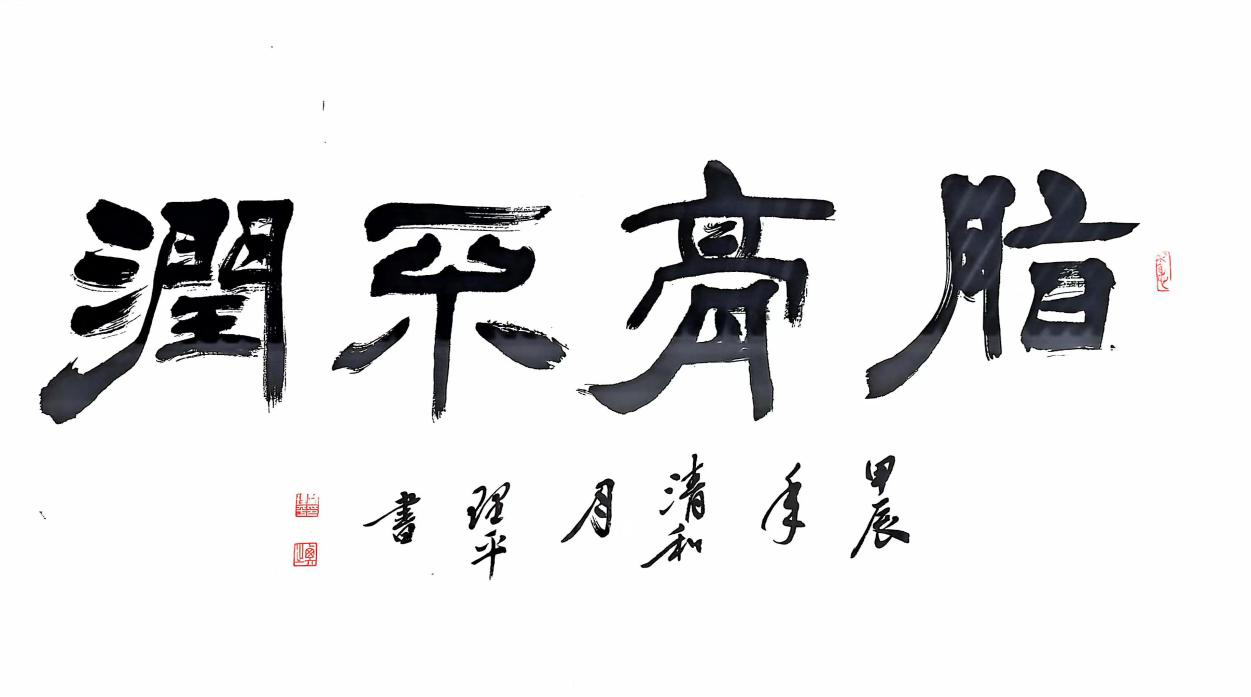 脂膏不潤
甲辰年清和月理平書